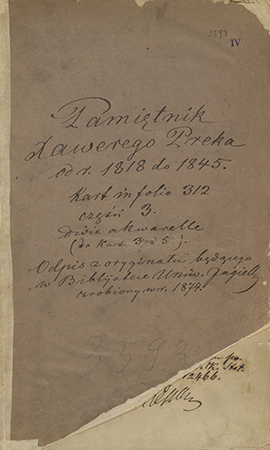 1593
IV
Pamiętnik
Xawerego Preka
od r. 1818 do 1845.
Kart in folio 312
część 3.
dwie akwarelle
(do kart 3 od 5.).
Odpis z oryginału będącego
w Biblijotece Uniw. Jagiell.
zrobiony w r. 1874
12466.